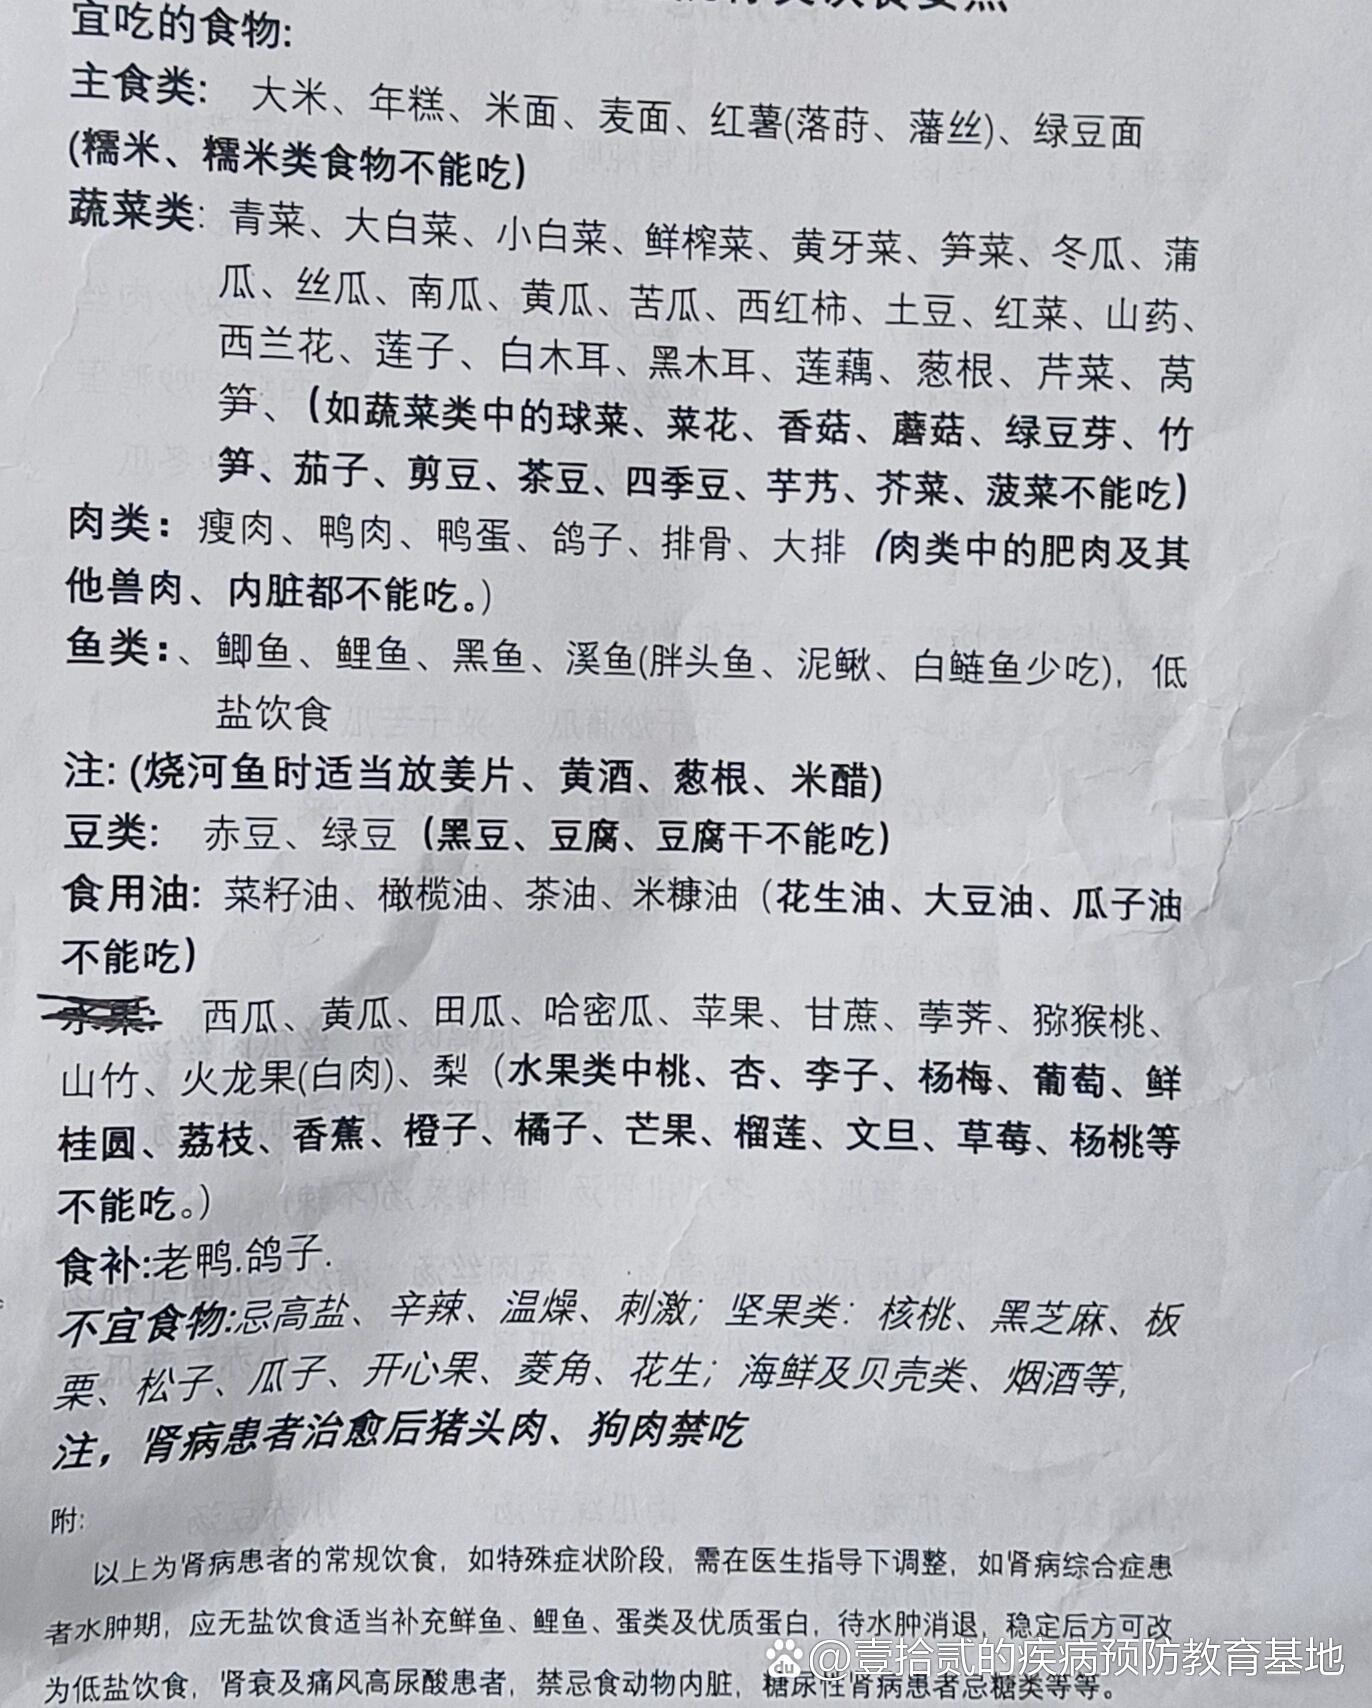 宜吃的食物:
主食类: 大米、年糕、米面、麦面、红薯(落莳、藩丝)、绿豆面
(糯米、糯米类食物不能吃)
蔬菜类: 青菜、大白菜、小白菜、鲜榨菜、黄牙菜、笋菜、冬瓜、蒲
瓜、丝瓜、南瓜、黄瓜、苦瓜、西红柿、土豆、红菜、山药、
西兰花、莲子、白木耳、黑木耳、莲藕、葱根、芹菜、莴
笋、(如蔬菜类中的球菜、菜花、香菇、蘑菇、绿豆芽、竹
笋、茄子、剪豆、茶豆、四季豆、芋艿、芥菜、菠菜不能吃)
肉类: 瘦肉、鸭肉、鸭蛋、鸽子、排骨、大排 (肉类中的肥肉及其
他兽肉、内脏都不能吃。)
鱼类:、鲫鱼、鲤鱼、黑鱼、溪鱼(胖头鱼、泥鳅、白鲢鱼少吃), 低
盐饮食
注: (烧河鱼时适当放姜片、黄酒、葱根、米醋)
豆类: 赤豆、绿豆 (黑豆、豆腐、豆腐干不能吃)
食用油: 菜籽油、橄榄油、茶油、米糠油 (花生油、大豆油、瓜子油
不能吃)
水果: 西瓜、黄瓜、田瓜、哈密瓜、苹果、甘蔗、荸荠、猕猴桃、
山竹、火龙果(白肉)、梨 (水果类中桃、杏、李子、杨梅、葡萄、鲜
桂圆、荔枝、香蕉、橙子、橘子、芒果、榴莲、文旦、草莓、杨桃等
不能吃。)
食补:老鸭.鸽子.
不宜食物:忌高盐、辛辣、温燥、刺激; 坚果类: 核桃、黑芝麻、板
栗、松子、瓜子、开心果、菱角、花生; 海鲜及贝壳类、烟酒等,
注, 肾病患者治愈后猪头肉、狗肉禁吃
附:
以上为肾病患者的常规饮食, 如特殊症状阶段, 需在医生指导下调整, 如肾病综合症患
者水肿期, 应无盐饮食适当补充鲜鱼、鲤鱼、蛋类及优质蛋白, 待水肿消退, 稳定后方可改
为低盐饮食, 肾衰及痛风高尿酸患者, 禁忌食动物内脏, 糖尿性肾病患者忌糖类等等。
@壹拾贰的疾病预防教育基地